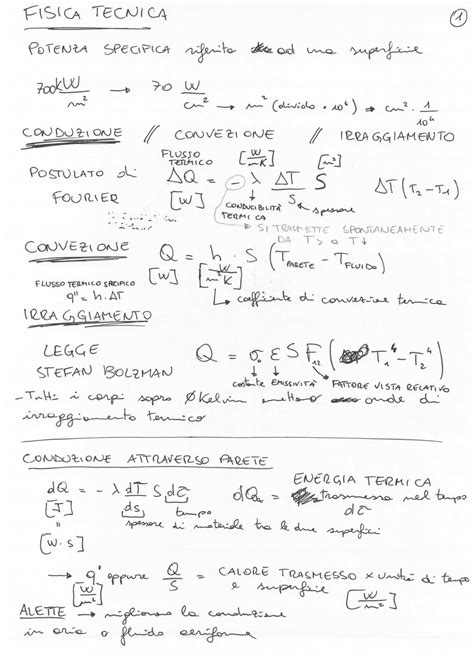 FISICA TECNICA
1
POTENZA SPECIFICA riferita ad una superficie
700 kW/m² → 70 W/cm² → m² (divido · 10⁴) → cm² · 1/10⁴
CONDUZIONE // CONVEZIONE // IRRAGGIAMENTO
POSTULATO di FOURIER
FLUSSO TERMICO [W/mK] [m²]
ΔQ = − λ ΔT/S S ΔT (T₂ − T₁)
[W] CONDUCIBILITÀ TERMICA spessore
SI TRASMETTE SPONTANEAMENTE DA T> a T↓
CONVEZIONE Q = h · S (T PARETE − T FLUIDO)
[W] [W/m²K]
FLUSSO TERMICO SPECIFICO
q" = h · ΔT
↳ coefficiente di convezione termica
IRRAGGIAMENTO
LEGGE STEFAN BOLZMAN
Q = σ₀ ε S F₁₂ (T₁⁴ − T₂⁴)
costante EMISSIVITÀ FATTORE VISTA RELATIVO
– Tutti i corpi sopra ØKelvin emettono onde di
irraggiamento termico
CONDUZIONE ATTRAVERSO PARETE
dQ = − λ dT/ds S dτ
tempo
[J] = [W·s]
spessore di materiale tra le due superfici
dQ = ENERGIA TERMICA trasmessa nel tempo dτ
→ q' oppure Q/S = CALORE TRASMESSO x unità di tempo e superficie [W/m²]
[W/m²]
ALETTE → migliorano la conduzione
in aria o fluido aeriforme